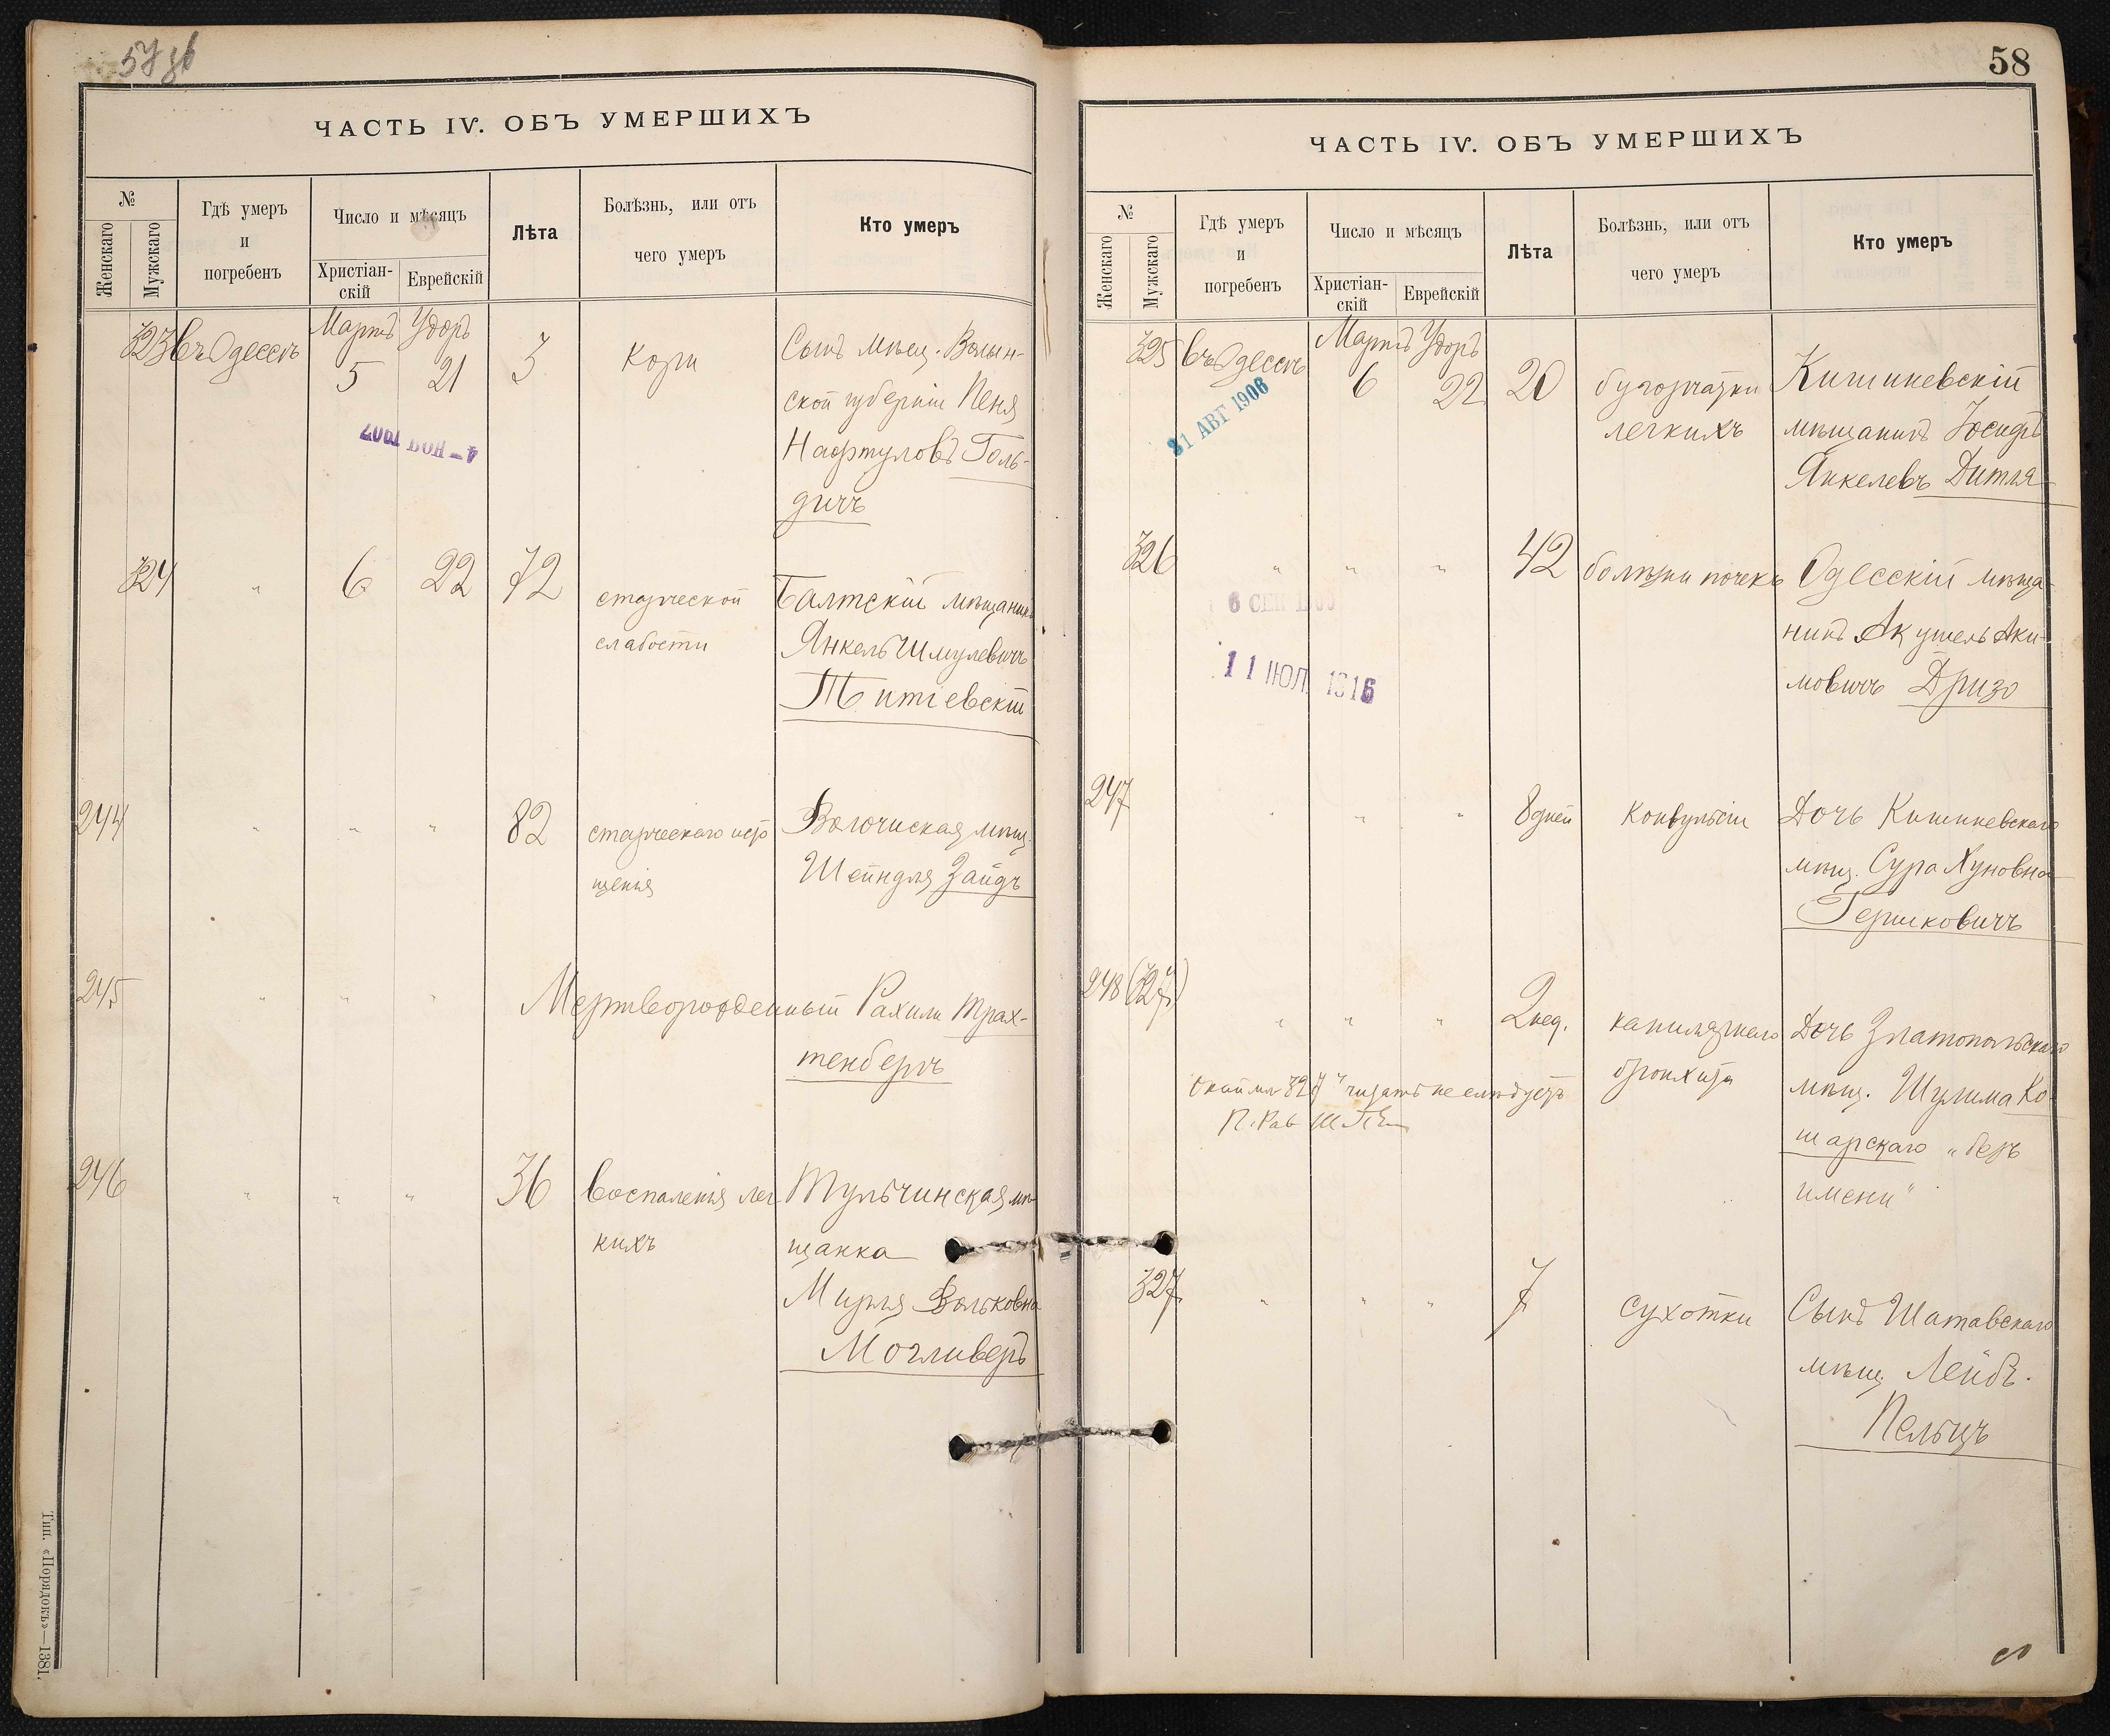 57 зв
ЧАСТЬ IV. ОБЪ УМЕРШИХЪ
№
Женскаго
Мужскаго
Гдѣ умеръ
и
погребенъ
Число и мѣсяцъ
Христіан-
скій
Еврейскій
Лѣта
Болѣзнь, или отъ
чего умеръ
Кто умеръ
323
въ Одессѣ
Мартъ Удоръ
5 21
3
Кори
Сынъ мѣщ. Волын-
ской губерніи Пеня
Нафтуловъ Голь-
дичъ
4 – НОЯ 1907
324 " 6 22 72
старческой
слабости
Балтскій мѣщанинъ
Янкель Шмулевичъ
Титіевскій
244 " " " 82
старческаго исто
щенія
Волочиская мѣщ.
Шейндля Зайдъ
245 " " "
Мертворожденный Рахили Трах-
тенбергъ
246 " " " 36
воспаленія лег
кихъ
Тульчинская мѣ-
щанка
Мирля Вольковна
Могливеръ
Тип. «Порядокъ»—1381.
58
ЧАСТЬ IV. ОБЪ УМЕРШИХЪ
№
Женскаго
Мужскаго
Гдѣ умеръ
и
погребенъ
Число и мѣсяцъ
Христіан-
скій
Еврейскій
Лѣта
Болѣзнь, или отъ
чего умеръ
Кто умеръ
325
въ Одессѣ
Мартъ Удоръ
6 22
20
бугорчатки
легкихъ
Кишиневскій
мѣщанинъ Іосифъ
Янкелевъ Дитля
31 АВГ 1906
326 " " " 42
болѣзни почекъ
Одесскій мѣща-
нинъ Акушель Аки-
мовичъ Дризо
6 СЕН
11 ІЮЛ. 1916
247 " " " 8 дней
Конвульсіи
Дочь Кишиневскаго
мѣщ. Сура Хуновна
Гершковичъ
248 (327) " " " 2 нед.
капилярнаго
бронхита
Дочь Златопольскаго
мѣщ. Шулима Ко-
шарскаго "безъ
имени"
327" читать не слѣдуетъ
П. Рав
327 " " " 7
сухотки
Сынъ Шатавскаго
мѣщ. Лейбъ
Пельцъ